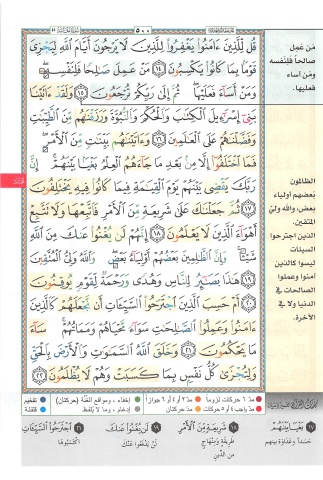 ٥٠٠
قُل لِّلَّذِينَ ءَامَنُوا۟ يَغْفِرُوا۟ لِلَّذِينَ لَا يَرْجُونَ أَيَّامَ ٱللَّهِ لِيَجْزِىَ
قَوْمًۢا بِمَا كَانُوا۟ يَكْسِبُونَ ١٤ مَنْ عَمِلَ صَٰلِحًا فَلِنَفْسِهِۦ
وَمَنْ أَسَآءَ فَعَلَيْهَا ثُمَّ إِلَىٰ رَبِّكُمْ تُرْجَعُونَ ١٥ وَلَقَدْ ءَاتَيْنَا
بَنِىٓ إِسْرَٰٓءِيلَ ٱلْكِتَٰبَ وَٱلْحُكْمَ وَٱلنُّبُوَّةَ وَرَزَقْنَٰهُم مِّنَ ٱلطَّيِّبَٰتِ
وَفَضَّلْنَٰهُمْ عَلَى ٱلْعَٰلَمِينَ ١٦ وَءَاتَيْنَٰهُم بَيِّنَٰتٍ مِّنَ ٱلْأَمْرِ
فَمَا ٱخْتَلَفُوٓا۟ إِلَّا مِنۢ بَعْدِ مَا جَآءَهُمُ ٱلْعِلْمُ بَغْيًۢا بَيْنَهُمْ إِنَّ
رَبَّكَ يَقْضِى بَيْنَهُمْ يَوْمَ ٱلْقِيَٰمَةِ فِيمَا كَانُوا۟ فِيهِ يَخْتَلِفُونَ
١٧ ثُمَّ جَعَلْنَٰكَ عَلَىٰ شَرِيعَةٍ مِّنَ ٱلْأَمْرِ فَٱتَّبِعْهَا وَلَا تَتَّبِعْ
أَهْوَآءَ ٱلَّذِينَ لَا يَعْلَمُونَ ١٨ إِنَّهُمْ لَن يُغْنُوا۟ عَنكَ مِنَ ٱللَّهِ
شَيْـًٔا وَإِنَّ ٱلظَّٰلِمِينَ بَعْضُهُمْ أَوْلِيَآءُ بَعْضٍ وَٱللَّهُ وَلِىُّ ٱلْمُتَّقِينَ
١٩ هَٰذَا بَصَٰٓئِرُ لِلنَّاسِ وَهُدًى وَرَحْمَةٌ لِّقَوْمٍ يُوقِنُونَ
٢٠ أَمْ حَسِبَ ٱلَّذِينَ ٱجْتَرَحُوا۟ ٱلسَّيِّـَٔاتِ أَن نَّجْعَلَهُمْ كَٱلَّذِينَ
ءَامَنُوا۟ وَعَمِلُوا۟ ٱلصَّٰلِحَٰتِ سَوَآءً مَّحْيَاهُمْ وَمَمَاتُهُمْ سَآءَ
مَا يَحْكُمُونَ ٢١ وَخَلَقَ ٱللَّهُ ٱلسَّمَٰوَٰتِ وَٱلْأَرْضَ بِٱلْحَقِّ
وَلِتُجْزَىٰ كُلُّ نَفْسٍۭ بِمَا كَسَبَتْ وَهُمْ لَا يُظْلَمُونَ ٢٢
من عمل
صالحاً فلنفسه
ومن أساء
فعليها.
الظالمون
بعضهم أولياء
بعض، والله ولي
المتقين.
الذين اجترحوا
السيئات
ليسوا كالذين
آمنوا وعملوا
الصالحات في
الدنيا ولا في
الآخرة.
مد ٦ حركات لزوماً مد ٢ أو ٤ أو ٦ جوازاً إخفاء، ومواقع الغنة (حركتان) تفخيم
مد واجب ٤ أو ٥ حركات مد حركتان إدغام، وما لا يُلفظ قلقلة
١٧ بَغْيًا بَيْنَهُمْ
حسداً وعداوة بينهم
١٨ شَرِيعَةٍ مِّنَ الْأَمْرِ
طريقة ومنهاج
من الدين
١٩ لَن يُغْنُوا عَنكَ
لن يدفعوا عنك
٢١ اجْتَرَحُوا السَّيِّئَاتِ
اكتسبوها